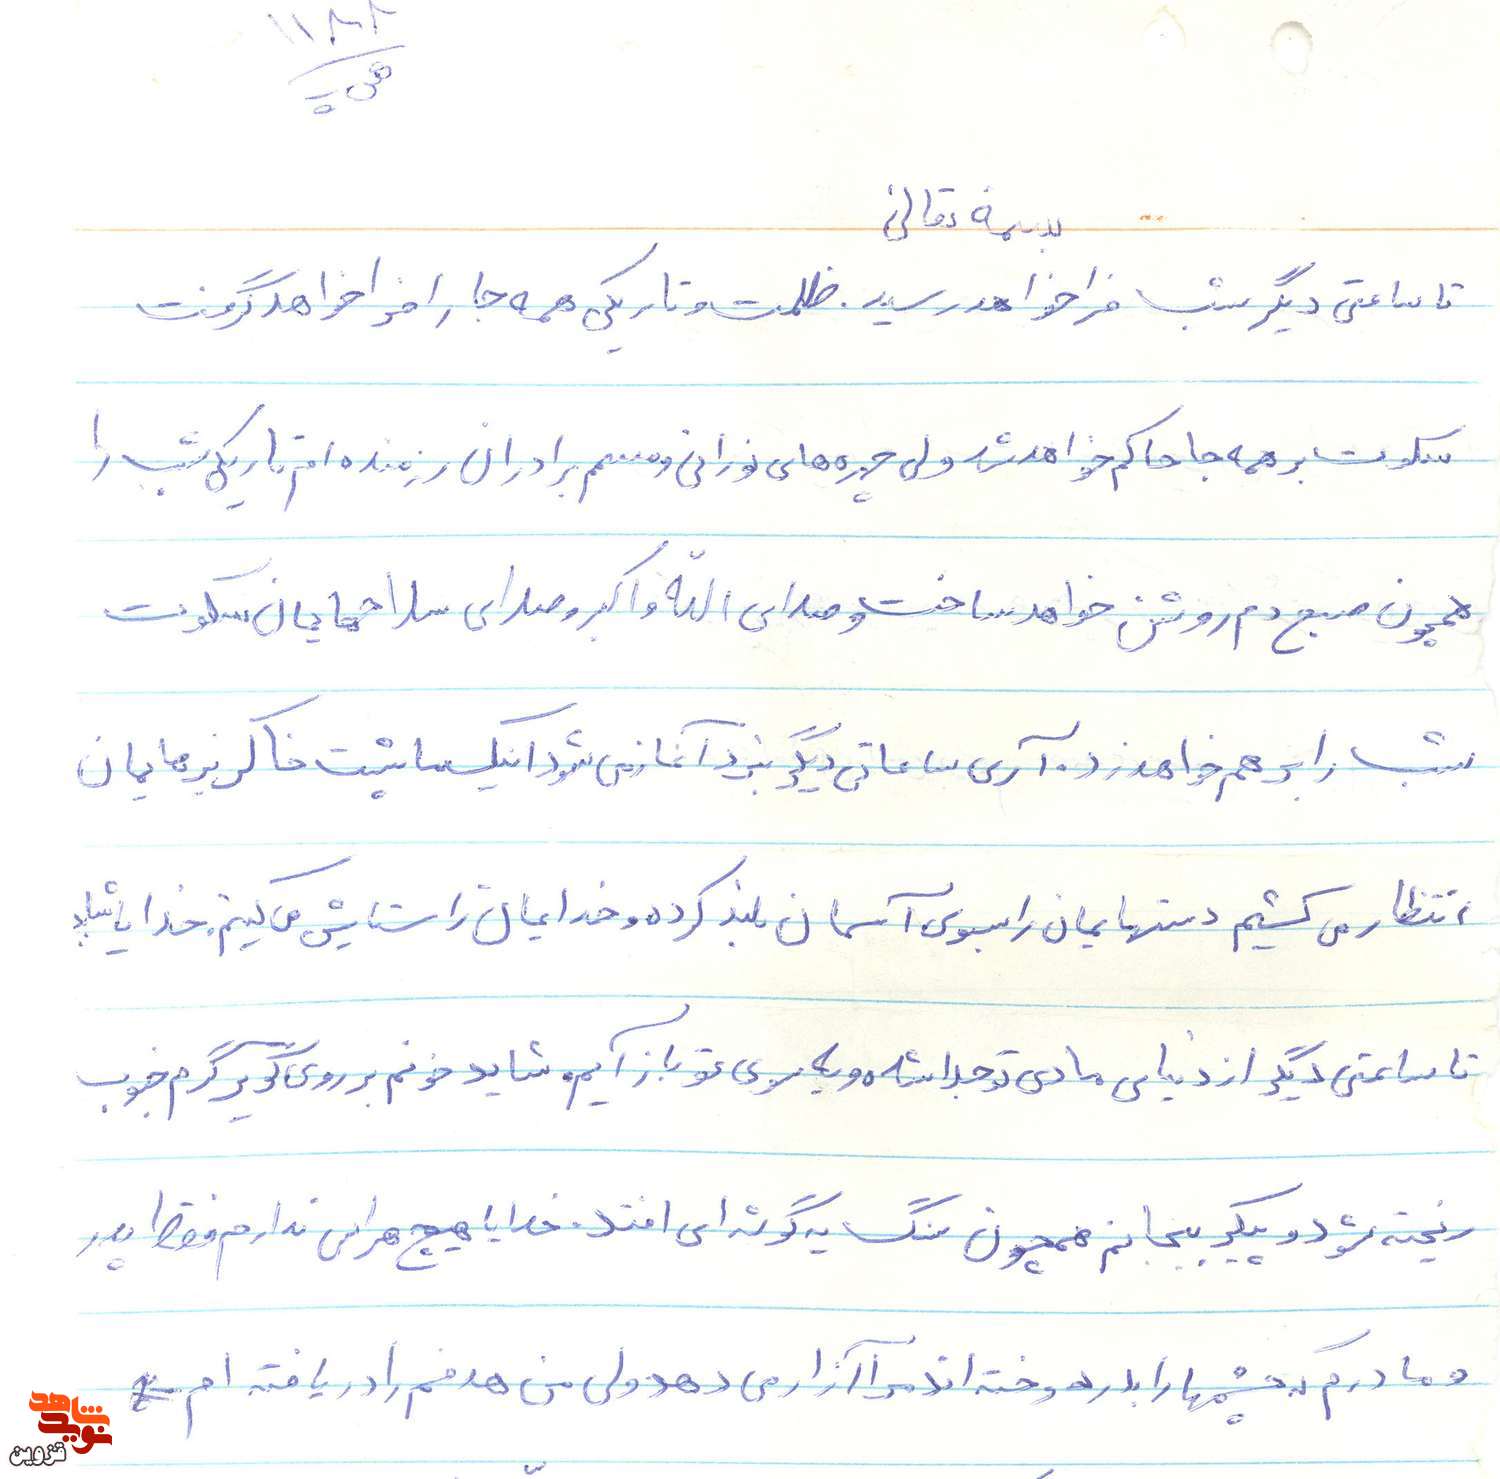 ۱۱۸۸۸
بسمه تعالی
تا ساعتی دیگر شب فرا خواهد رسید. ظلمت و تاریکی همه جا را فرا خواهد گرفت
سکوت بر همه جا حاکم خواهد شد ولی چهره های نورانی و مصمم برادران رزمنده ام تاریکی شب را
همچون صبح دم روشن خواهد ساخت و صدای الله و اکبر و صدای سلاحهایمان سکوت
شب را بر هم خواهد زد. آری ساعاتی دیگر نبرد آغاز می شود اینک ما پشت خاکریزهایمان
انتظار می کشیم دستهایمان را بسوی آسمان بلند کرده و خدایمان را ستایش می کنیم. خدایا شاید
تا ساعتی دیگر از دنیای مادی تو جدا شده و به سوی تو باز آیم. شاید خونم بر روی کویر گرم جنوب
ریخته شود و پیکر بیجانم همچون سنگ به گوشه ای افتد. خدایا هیچ هراس ندارم فقط پدر
و مادرم که چشمها را بدر دوخته اند مرا آزار می دهد ولی من هدفم را دریافته ام
نوید شاهد
قزوین